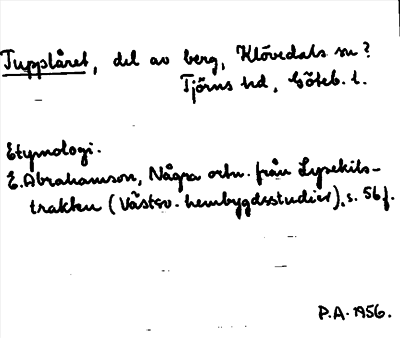 Tupplåret, del av berg, Klövedals sn?
Tjörns hd, Göteb. l.
Etymologi.
E. Abrahamson, Några ortn. från Lysekils-
trakten (Västsv. hembygdsstudier), s. 56 f.
P.A. 1956.